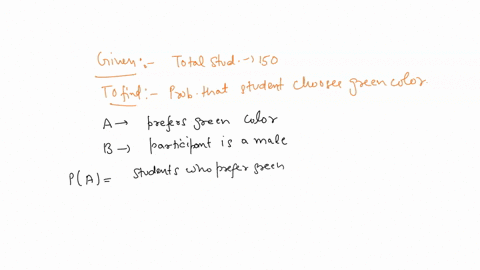 Given:- Total stud. → 150
To find:- Prob. that student chooses green color.
A → prefers green color
B → participant is a male
P(A) = students who prefer green